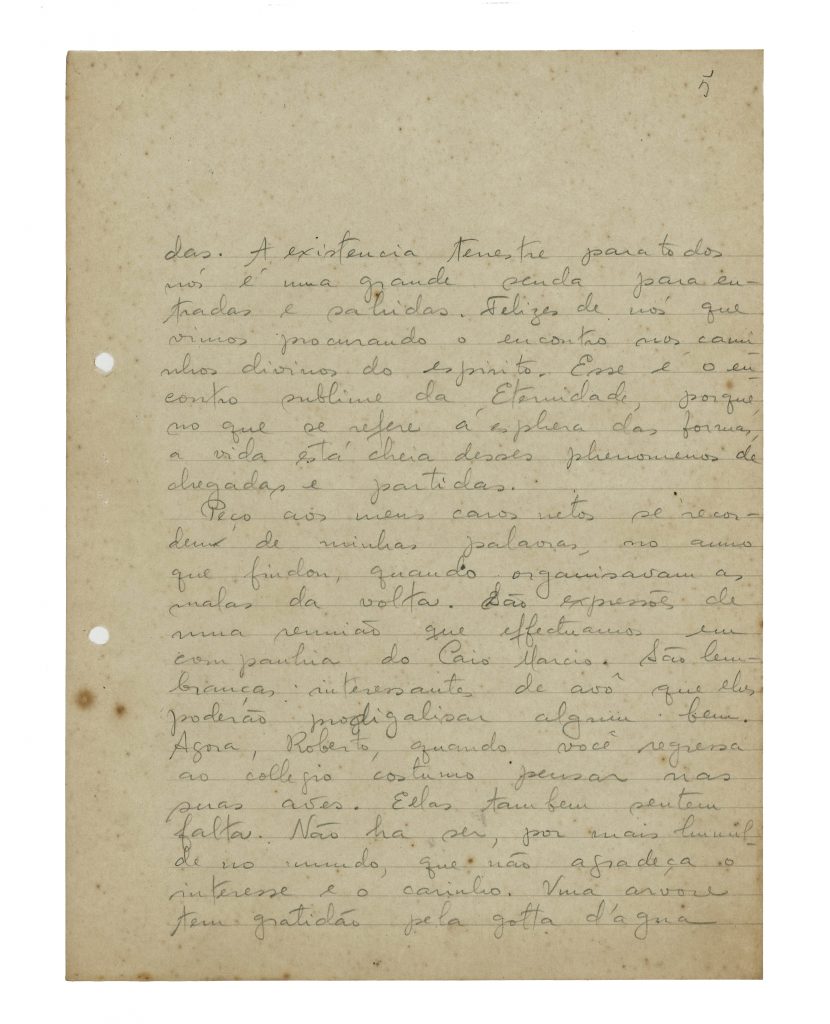 5
das. A existencia terrestre para todos
nós é uma grande senda para en-
tradas e sahidas. Felizes de nós que
vimos procurando o encontro nos cami
nhos divinos do espirito. Esse é o en-
contro sublime da Eternidade, porque,
no que se refere á esphera das formas,
a vida está cheia desses phenomenos de
chegadas e partidas.
Peço aos meus caros netos se recor-
dem de minhas palavras, no anno
que findou, quando organisavam as
malas da volta. São expressões de
uma reunião que effectuamos em
companhia do Caio Marcio. São lem-
branças interessantes de avô que elles
poderão prodigalisar algum bem.
Agora, Roberto, quando você regressa
ao collegio costumo pensar nas
suas aves. Ellas tambem sentem
falta. Não ha ser, por mais humil-
de no mundo, que não agradeça o
interesse e o carinho. Uma arvore
tem gratidão pela gotta d'agua